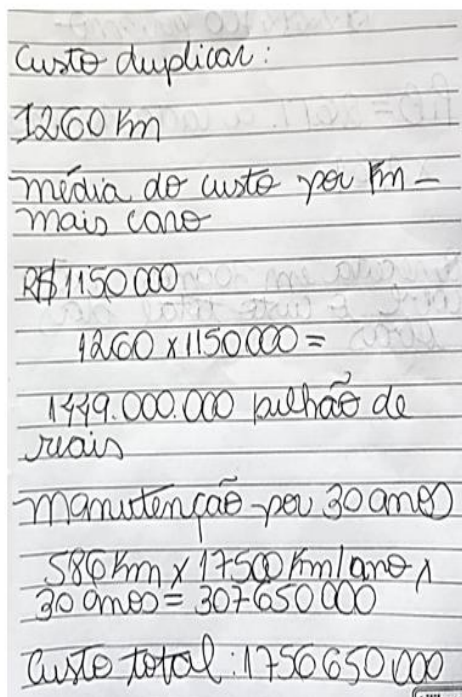 Custo duplicar:
1260 Km
média do custo por Km -
mais caro
R$ 1150 000
1260 x 1150000 =
1449.000.000 bilhão de
reais
manutenção por 30 anos
586 Km x 17500 Km/ano x
30 anos = 307650 000
Custo total: 1756 650 000